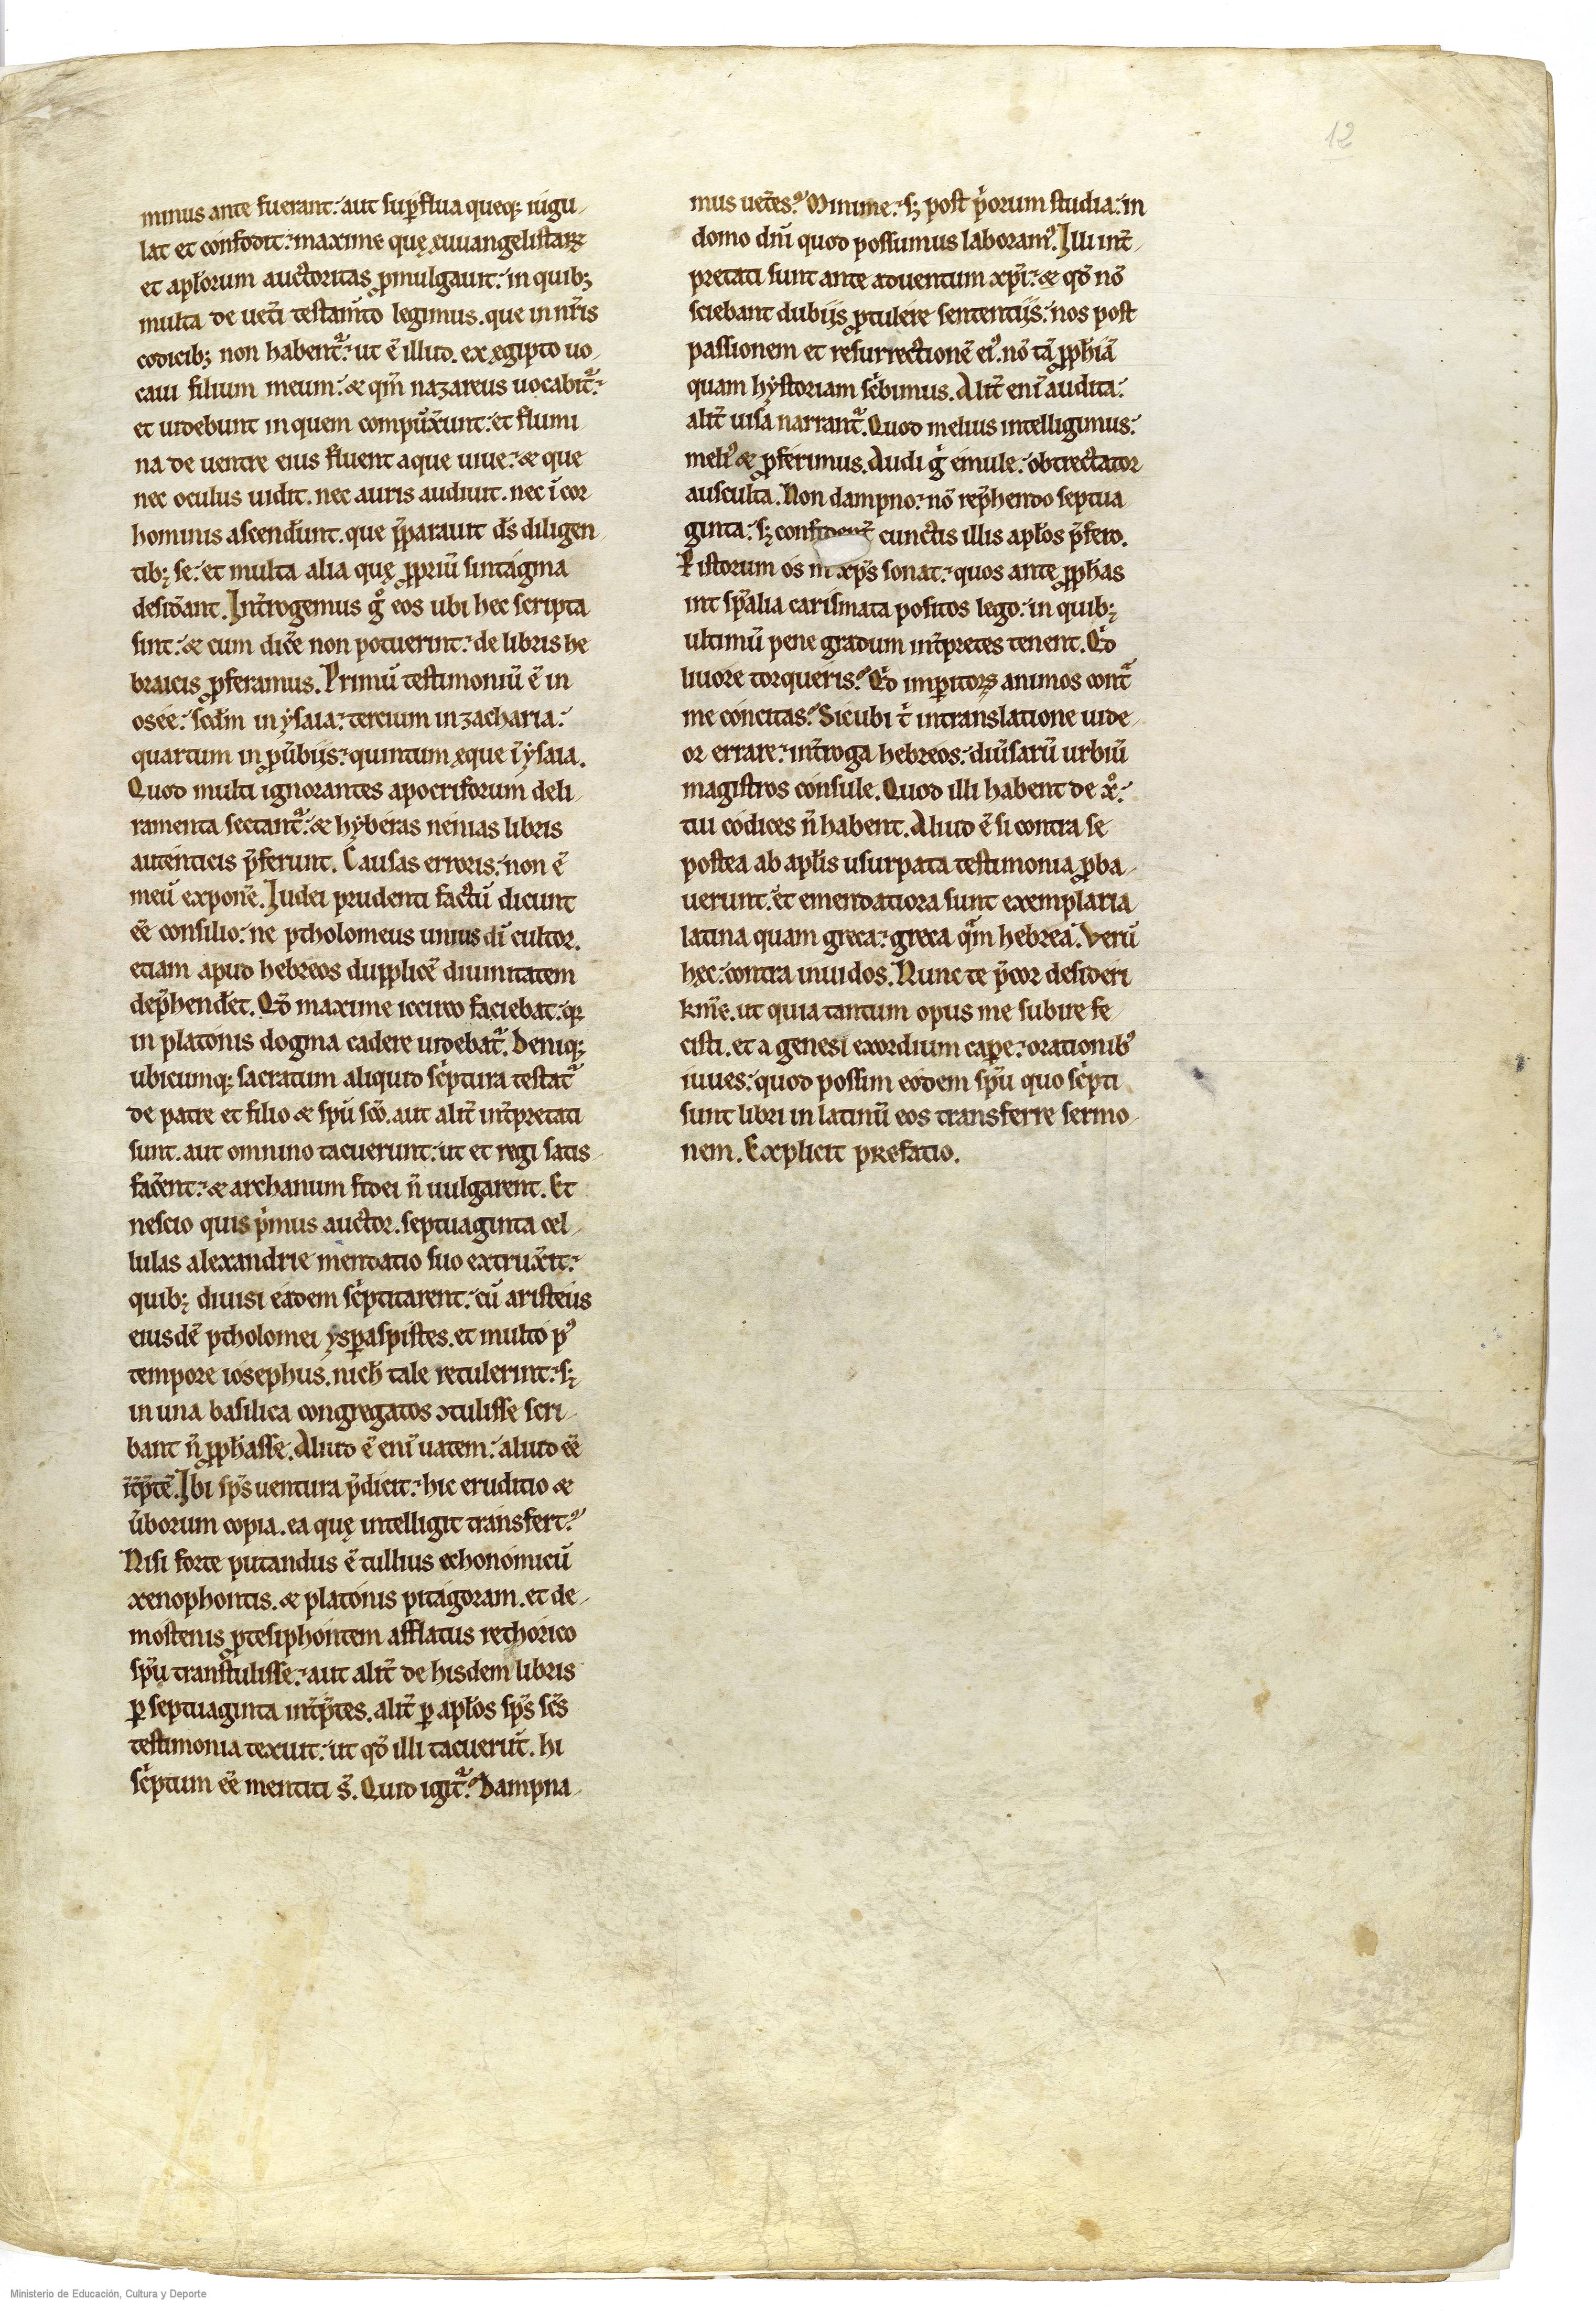 12
minus ante fuerant: aut sup̄flua queq; iugu-
lat et confodit: maxime quę ęuuangelistaꝝ
et apl̄orum auctoritas ꝓmulgauit: in quib;
multa de uet̄i testam̄to legimus. que in nr̄is
codicib; non habentᷣ: ut ē illud. ex ęgipto uo-
caui filium meum: & qm̄ nazareus uocabitᷣ:
et uidebunt in quem compūx̄unt: et flumi
na de uentre eius fluent aque uiue: & que
nec oculus uidit. nec auris audiuit. nec ī cor
hominis ascend̄unt. que p̄parauit d̄s diligen-
tib; se: et multa alia quę ꝓpriū sintagma
desid̄ant. Int̄rogemus gͦ eos ubi hec scripta
sint: & cum dic̄e non potuerint: de libris he
braicis ꝓferamus. Primū testimoniū ē in
osee: scd̄m in ysaia: tercium in zacharia:
quartum in ꝓūbiis: quintum ęque ī ysaia.
Quod multi ignorantes apocriforum deli-
ramenta sectantᷣ: & hyberas nenias libris
autenticis p̄ferunt. Causas erroris: non ē
meū expon̄e. Iudei prudenti factū dicunt
ēē consilio: ne ptholomeus unius dī cultor.
etiam apud hebreos dupplicē diuinitatem
dep̄hend̄et. Qd̄ maxime iccirco faciebat: qꝫ
in platonis dogma cadere uidebatᷣ. Deniq;
ubicumq; sacratum aliquid sc̍ptura testatᷣ
de patre et filio & spū scō. aut alit̄ int̄pretati
sunt. aut omnino tacuerunt: ut et regi satis-
fac̄ent: & archanum fidei n̄ uulgarent. Et
nescio quis p̍mus auctor. septuaginta cel-
lulas alexandrie mendatio suo extrux̄it:
quib; diuisi eadem sc̍ptitarent: cū aristeus
eiusdē ptholomei yspaspistes. et multo pꝰ
tempore iosephus. nich̄ tale retulerint: sꝫ
in una basilica congregatos ꝯtulisse scri-
bant n̄ ꝓph̄asse. Aliud ē enī uatem: aliud ēē
īt̄p̄tē. Ibi sp̄s uentura p̄dicit: hic eruditio &
ūborum copia. ea quę intelligit transfert:
Nisi forte putandus ē tullius echonomicū
xenophontis. & platonis pitagoram. et de-
mostenis ꝓtesiphontem afflatus rethorico
spū transtulisse: aut alit̄ de hisdem libris
ꝑ septuaginta int̄p̄tes. alit̄ ꝑ apl̄os sp̄s sc̄s
testimonia texuit: ut qd̄ illi tacuerūt. hi
sc̍ptum ēē mentiti s̄. Quid igitᷣ? Dampna-
mus uet̄es? Minime: sꝫ post p̍orum studia: in
domo dnī quod possumus laboramꝰ. Illi int̄-
pretati sunt ante aduentum xp̄i: & qd̄ nō
sciebant dubiis ꝓtulere sententiis: nos post
passionem et resurrectionē eiꝰ. nō tā ꝓph̄iā
quam hystoriam sc̍bimus. Alit̄ enī audita:
alit̄ uisa narrantᷣ. Quod melius intelligimus:
meliꝰ & ꝓferimus. Audi g̍ emule: obtrectator
ausculta. Non dampno: nō rep̄hendo septua
ginta: sꝫ confident̄ cunctis illis apl̄os p̄fero.
P istorum os m xp̄s sonat: quos ante ꝓph̄as
int sp̄alia carismata positos lego: in quib;
ultimū pene gradum int̄pretes tenent. Qd̍
liuore torqueris? Qd̍ imꝑitoꝝ animos contᷓ
me concitas? Sicubi t̍ in translatione uide-
or errare: int̄roga hebreos: diūsarū urbiū
magistros consule. Quod illi habent de xͦ:
tui codices n̄ habent. Aliud ē si contra se
postea ab apl̄is usurpata testimonia ꝓba-
uerunt: et emendatiora sunt exemplaria
latina quam greca: greca qᷓm hebrea. Verū
hęc: contra inuidos. Nunc te p̄cor desideri
km̄e. ut quia tantum opus me subire fe-
cisti. et a genesi exordium caꝑe: orationibꝰ
iuues: quod possim eodem spū quo sc̍pti
sunt libri in latinū eos transferre sermo-
nem. Explicit prefatio.
Ministerio de Educación, Cultura y Deporte